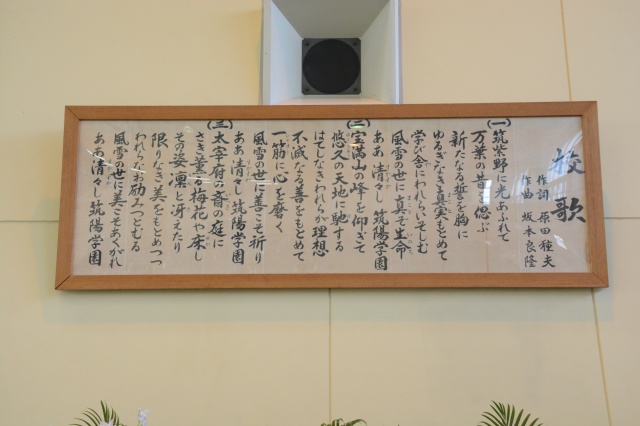 校歌
作詞 原田種夫
作曲 坂本良隆
(一)筑紫野に光あふれて
万葉の昔を偲ぶ
新たなる誓を胸に
ゆるぎなき真実もとめて
学び舎にわれらいそしむ
風雪の世に真こそ生命
ああ清々し筑陽学園
(二)宝満山の峰を仰ぎて
悠久の天地に馳する
はてしなきわれらが理想
不滅なる善をもとめて
一筋に心を磨く
風雪の世に善こそ祈り
ああ清々し筑陽学園
(三)太宰府の斎の庭に
さき薫る梅花や床し
その姿凜と冴えたり
限りなき美をもとめつつ
われらなお励みつとむる
風雪の世に美こそあくがれ
ああ清々し筑陽学園